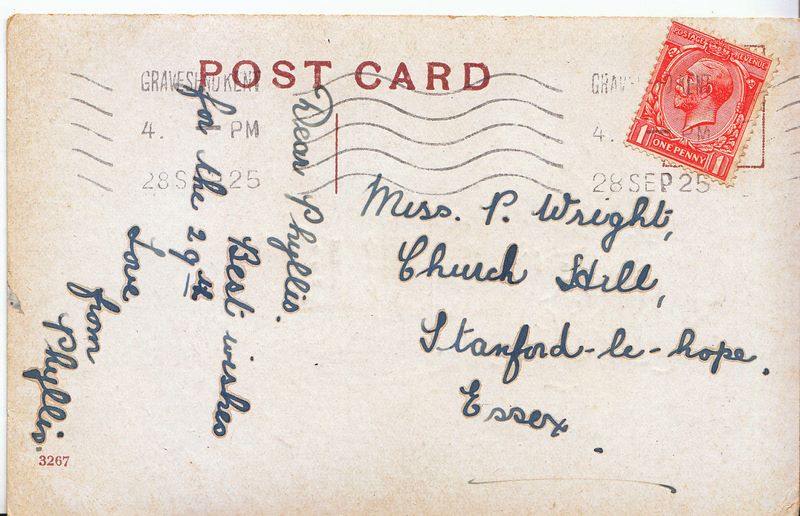 POST CARD
GRAVESEND KENT
4. PM
28 SEP 25
GRAVES ND KENT
4. PM
28 SEP 25
POSTAGE REVENUE
1 ONE PENNY 1
Dear Phyllis.
Best wishes
for the 29th
Love
from
Phyllis.
Miss. P. Wright,
Church Hill,
Stanford-le-hope.
Essex.
3267